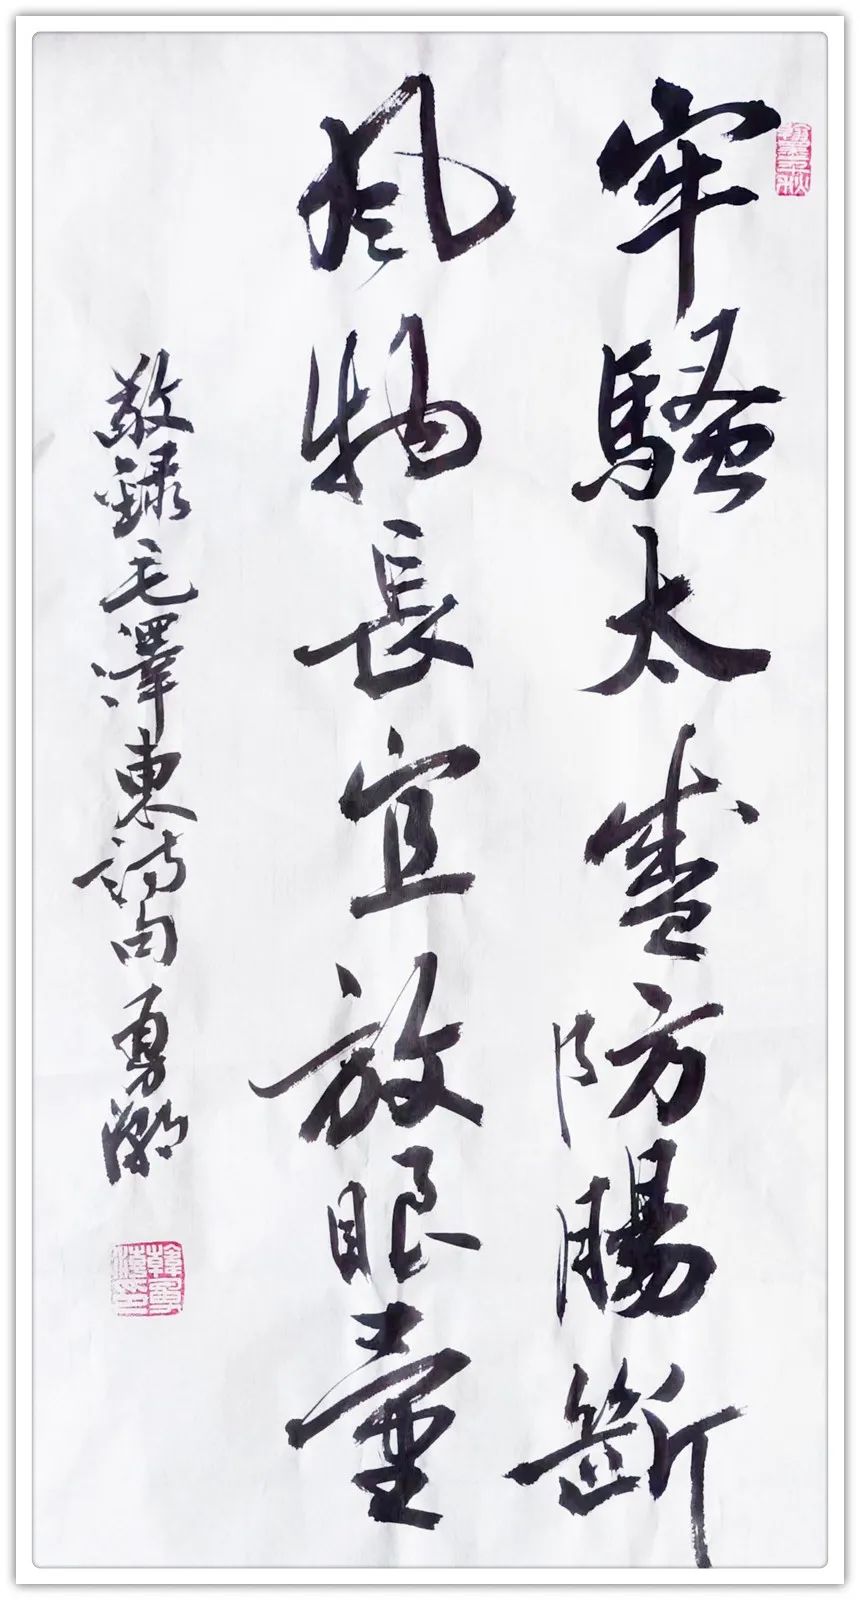 牢騷太盛防腸斷
風物長宜放眼量
敬録毛澤東詩句 勇